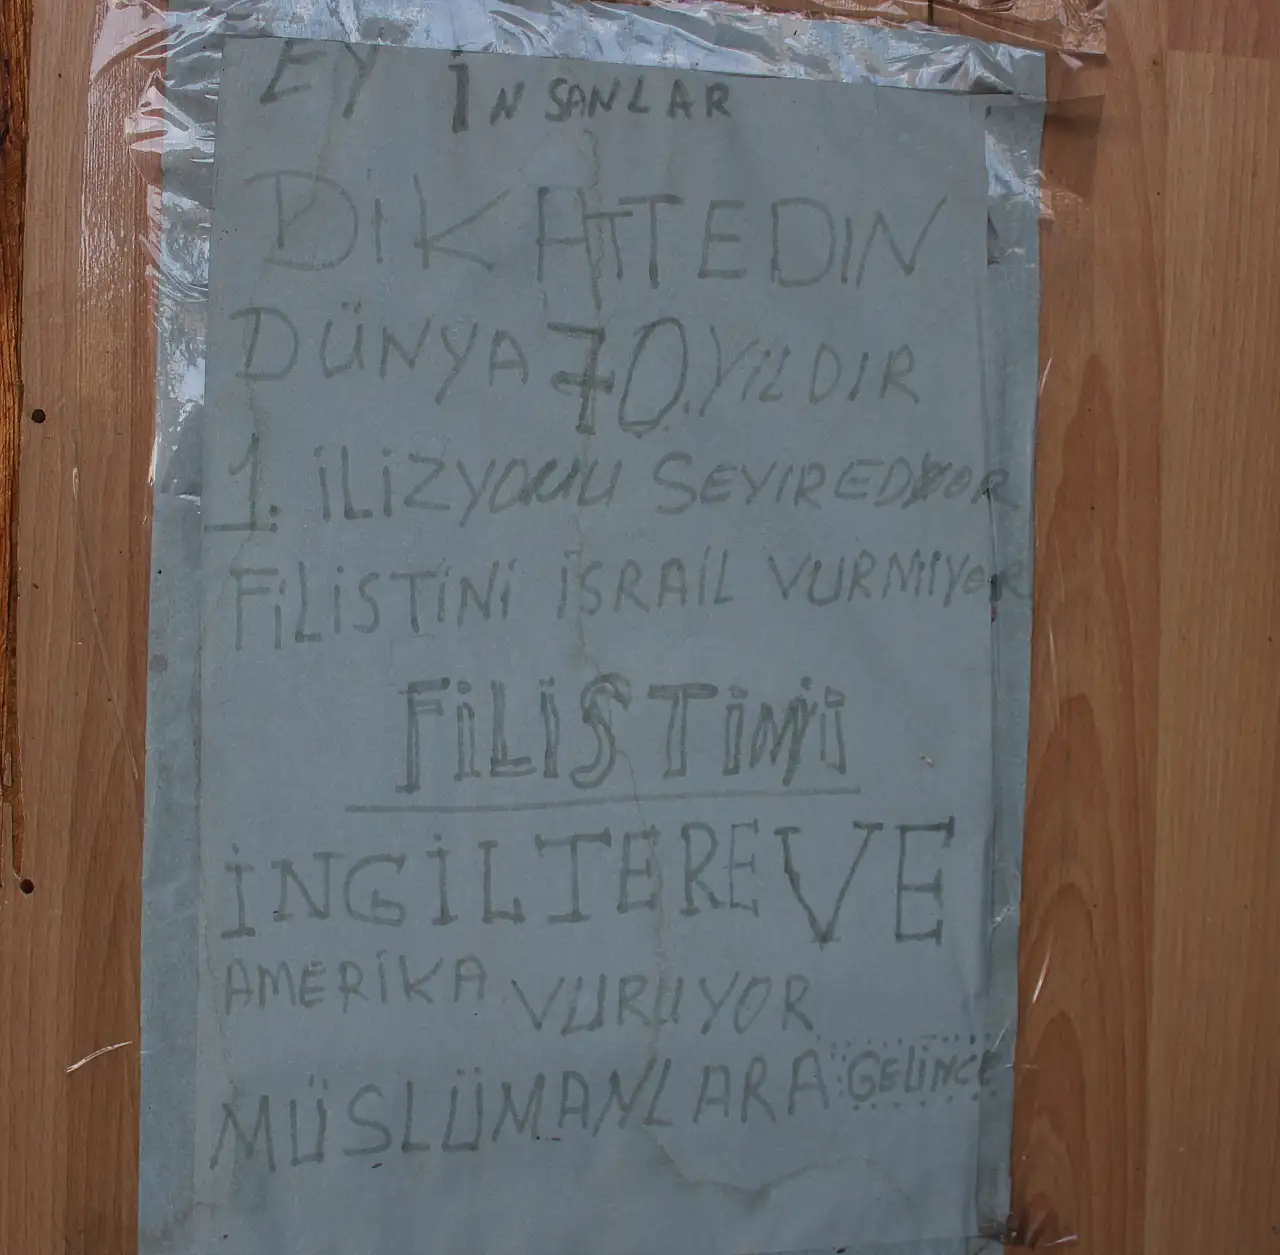 EY İNSANLAR
DIKATTEDIN
DÜNYA 70.YİLDIR
1. İLİZYONU SEYIREDİYOR
FİLİSTİNİ İSRAİL VURMİYOR
FİLİSTİNİ
İNGİLTERE VE
AMERİKA VURUYOR
MÜSLÜMANLARA GELİNCE